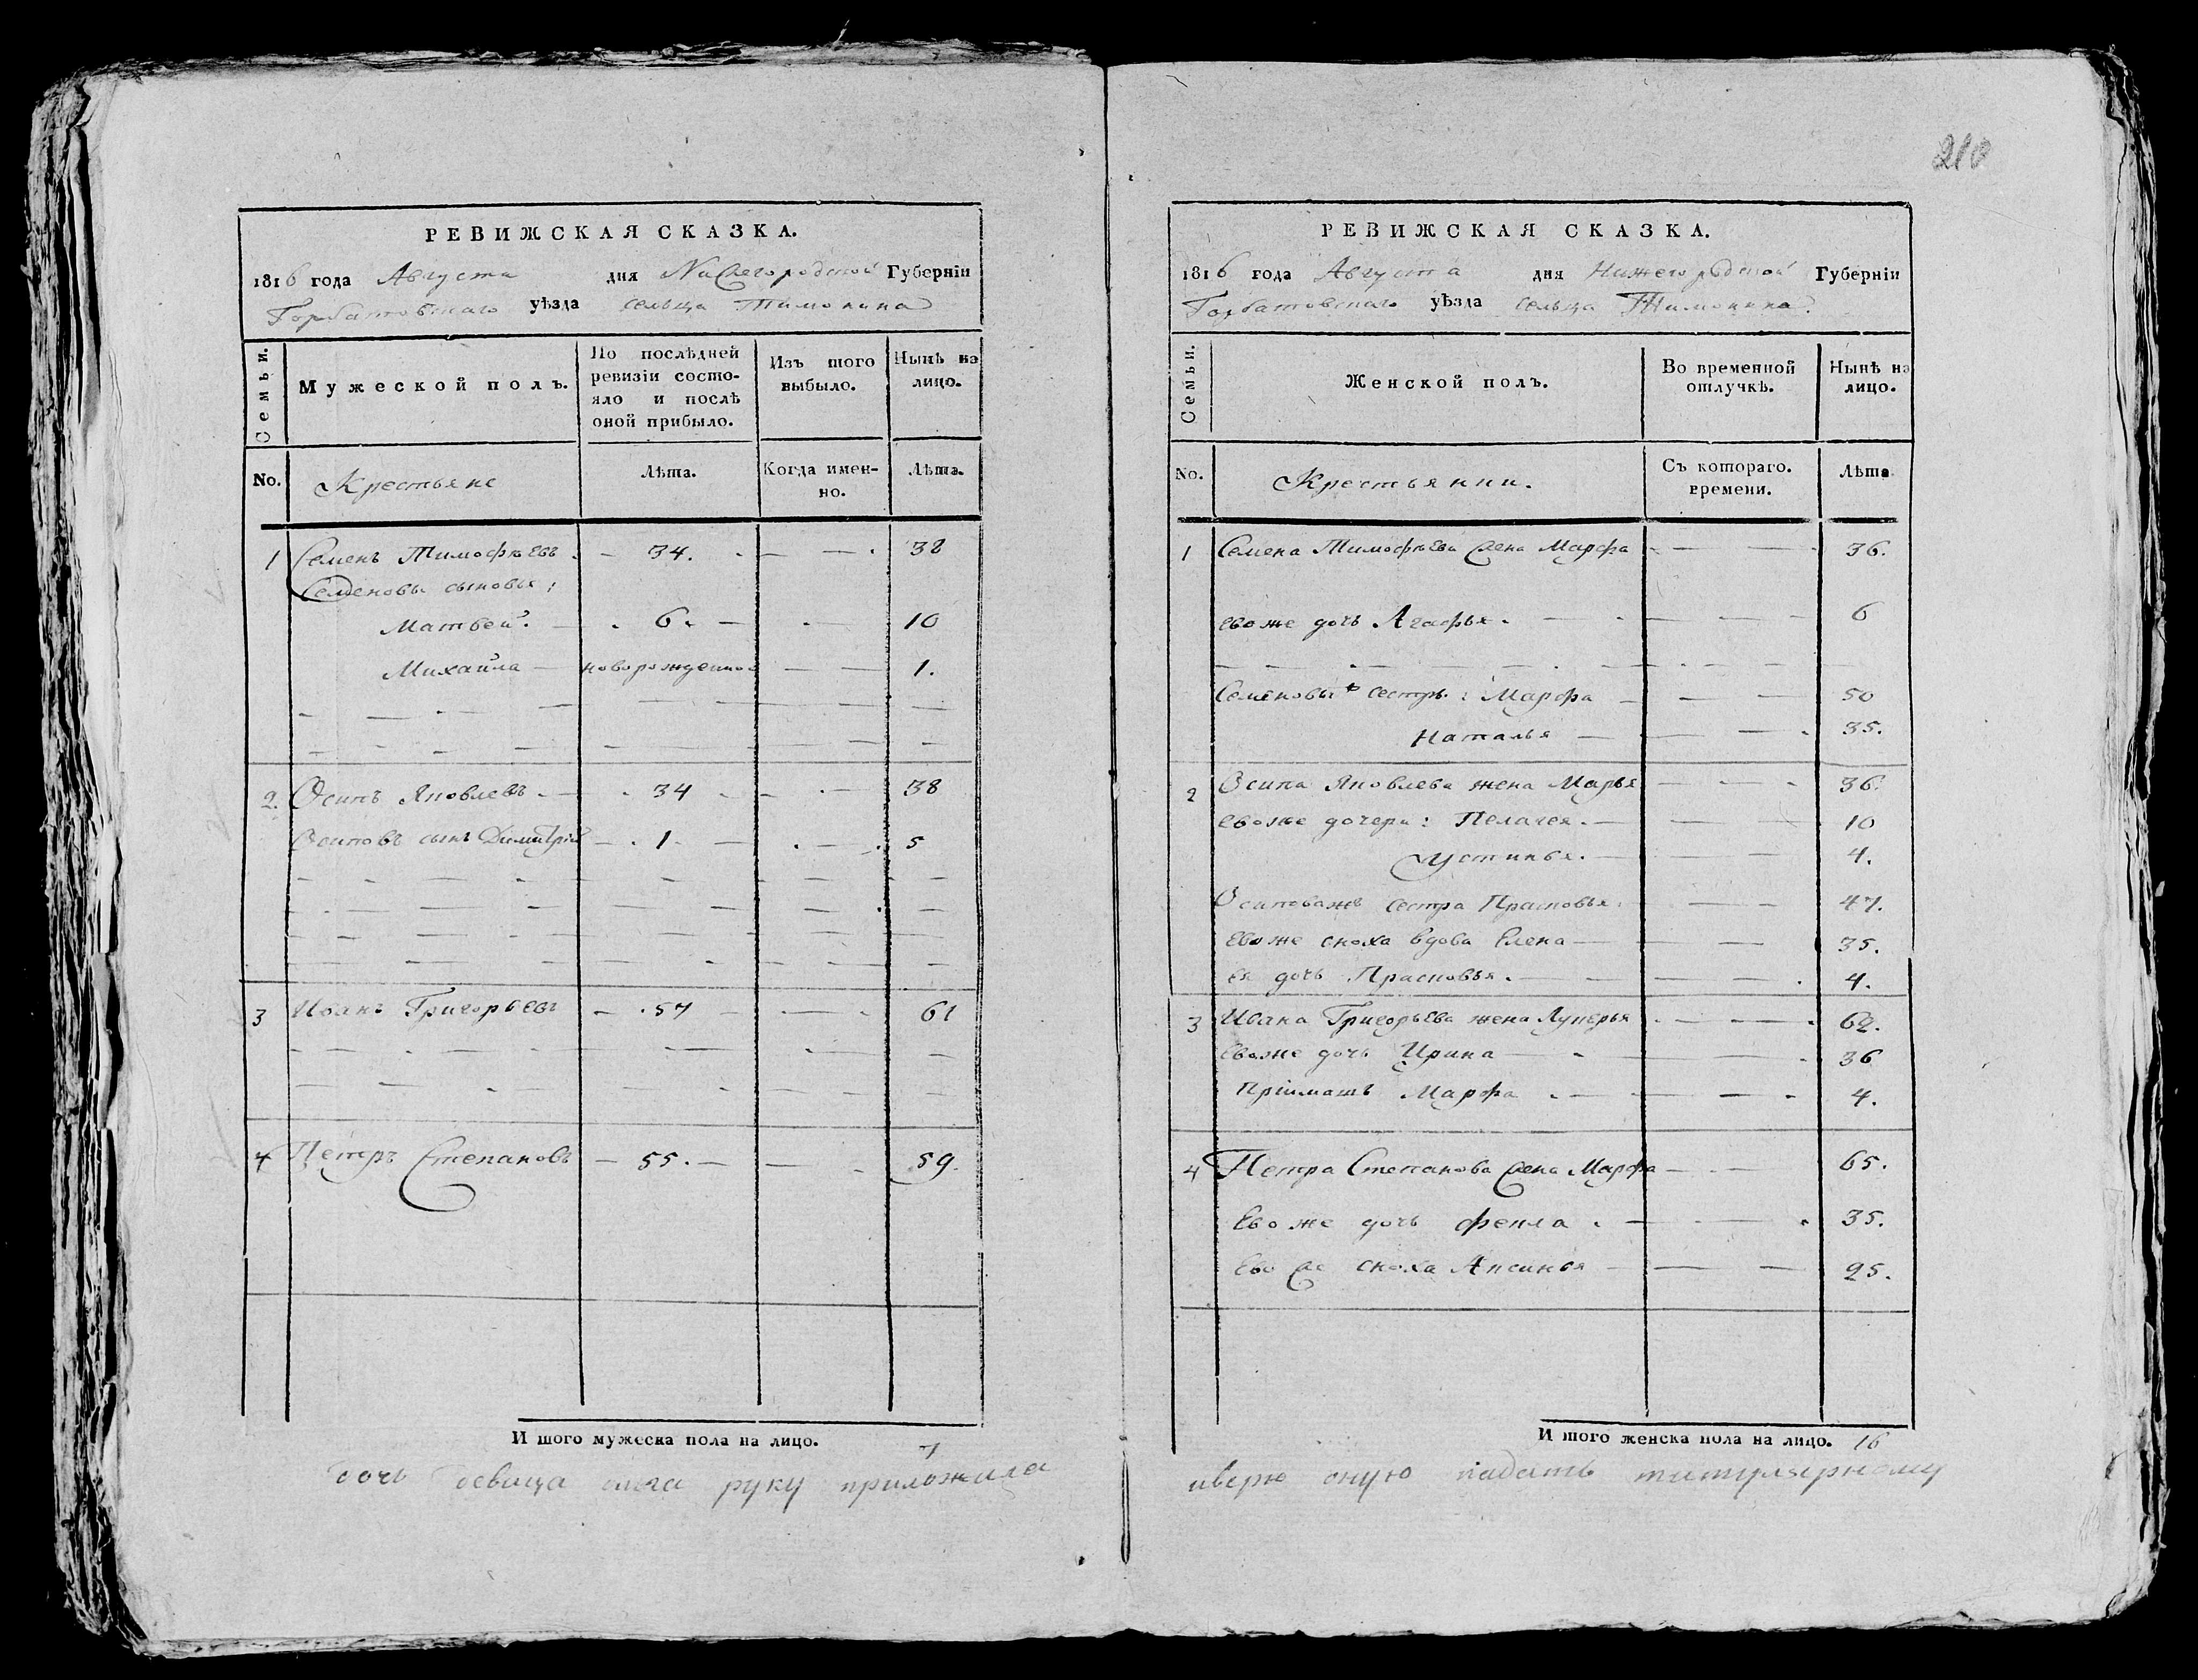 РЕВИЖСКАЯ СКАЗКА.
1816 года Августа дня Нижегородской Губерніи
Горбатовскаго уѣзда сельца Тимонина
Семьи.
Мужеской полъ.
По послѣдней ревизіи состояло и послѣ оной прибыло.
Изъ того выбыло.
Нынѣ на лицо.
No.
Крестьяне
Лѣта.
Когда именно.
Лѣта.
1 Семенъ Тимофѣевъ 34. 38
Семеновы сыновья:
Матвей. 6. 10
Михайла новорожденной 1.
2. Осипъ Яковлевъ 34 38
Осиповъ сынъ Димитрій 1. 5
3 Иванъ Григорьевъ 57 61
4 Петръ Степановъ 55. 59.
Итого мужеска пола на лицо. 7
дочь девица руку приложила
210
РЕВИЖСКАЯ СКАЗКА.
1816 года Августа дня Нижегородской Губерніи
Горбатовскаго уѣзда сельца Тимонина.
Семьи.
Женской полъ.
Во временной отлучкѣ.
Нынѣ на лицо.
No.
Крестьянки.
Съ котораго. времени.
Лѣта
1 Семена Тимофѣева жена Марфа 36.
ево же дочь Агафья. 6
Семеновы сестры: Марфа 50
Наталья 35.
2 Осипа Яковлева жена Марья 36.
ево же дочери: Пелагея. 10
Устинья. 4.
Осипова жъ сестра Прасковья. 47.
ево же сноха вдова Елена 35.
ея дочь Прасковья. 4.
3 Ивана Григорьева жена Лукерья 62.
ево же дочь Ирина 36
Пріимышъ Марфа 4.
4 Петра Степанова жена Марфа 65.
Ево же дочь Фекла. 35.
Ево же сноха Аксинья 25.
Итого женска пола на лицо. 16
иверю оную падать титулярному